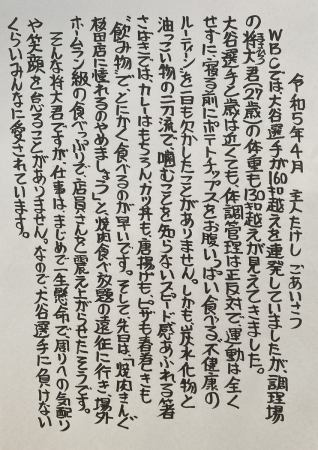 令和5年4月　主人たけし　ごあいさつ
WBCでは大谷選手が160キロ越えを連発していましたが、調理場
の将大君(27歳)の体重も130キロ越えが見えてきました。
大谷選手と歳は近くても、体調管理は正反対で運動は全く
せずに、寝る前にポテトチップスをお腹いっぱい食べる不健康の
ルーティーンを一日も欠かしたことがありません。しかも、炭水化物と
油っこい物の二刀流で、噛むことを知らないスピード感あふれる箸
さばきでは、カレーはもちろんカツ丼も、唐揚げも、ピザも春巻きも
“飲み物”で、とにかく食べるのが早いです。そして、先日は、「焼肉きんぐ
桜田店に憧れるのやめましょう」と焼肉食べ放題の遠征に行き、場外
ホームラン級の食べっぷりで、店員さんを震え上がらせたそうです。
そんな将大君ですが、仕事はまじめで一生懸命で周りへの気配り
や笑顔を怠ることがありません。なので、大谷選手に負けない
くらいみんなに愛されています。